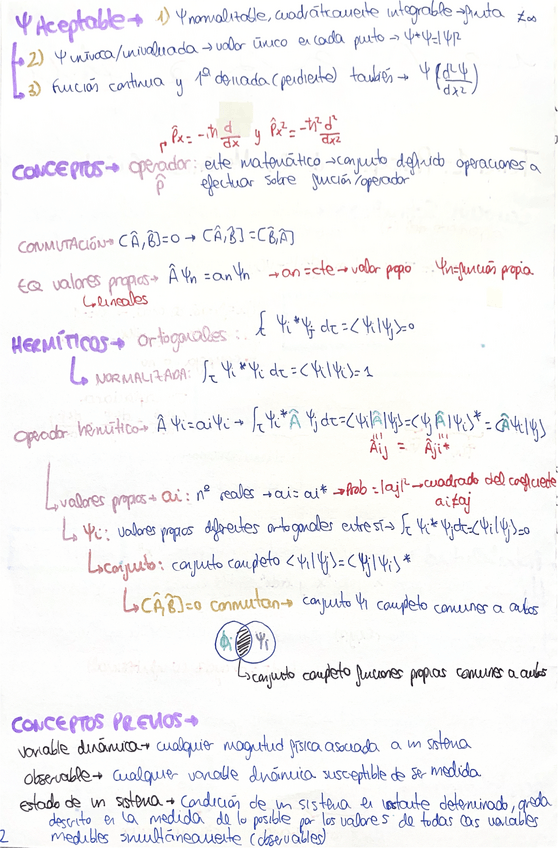 Ψ Aceptable → 1) Ψ normalizable, cuadráticamente integrable → finita ≠∞
2) Ψ unívoca/univaluada → valor único en cada punto → Ψ*Ψ=|Ψ|²
3) Función continua y 1ª derivada (pendiente) también → Ψ (d²Ψ/dx²)
P̂x = -iħ d/dx y P̂x² = -ħ² d²/dx²
CONCEPTOS → operador: ente matemático → conjunto definido operaciones a
p̂ efectuar sobre función/operador
CONMUTACIÓN → [Â,B̂]=0 → [Â,B̂]=[B̂,Â]
EQ valores propios → Â Ψn = an Ψn → an = cte → valor propio Ψn = función propia
↳ lineales
HERMÍTICOS → Ortogonales: ∫τ Ψi* Ψj dτ = ⟨Ψi|Ψj⟩ = 0
↳ NORMALIZADA: ∫τ Ψi* Ψi dτ = ⟨Ψi|Ψi⟩ = 1
Operador hermítico → Â Ψi = ai Ψi → ∫τ Ψi* Â Ψj dτ = ⟨Ψi|Â|Ψj⟩ = ⟨Ψj|Â|Ψi⟩* = ⟨ÂΨi|Ψj⟩
Âij = Âji*
↳ valores propios → ai: nº reales → ai = ai* → Prob = |aj|² → cuadrado del coeficiente
ai ≠ aj
↳ Ψi: valores propios diferentes ortogonales entre sí → ∫τ Ψi* Ψj dτ = ⟨Ψi|Ψj⟩ = 0
↳ conjunto: conjunto completo ⟨Ψi|Ψj⟩ = ⟨Ψj|Ψi⟩*
↳ [Â,B̂]=0 conmutan → conjunto Ψi completo comunes a ambos
ϕi Ψi
↳ conjunto completo funciones propias comunes a ambos
CONCEPTOS PREVIOS →
variable dinámica → cualquier magnitud física asociada a un sistema
observable → cualquier variable dinámica susceptible de ser medida
estado de un sistema → Condición de un sistema en instante determinado, queda
descrito en la medida de lo posible por los valores de todas las variables
2 medibles simultáneamente (observables)